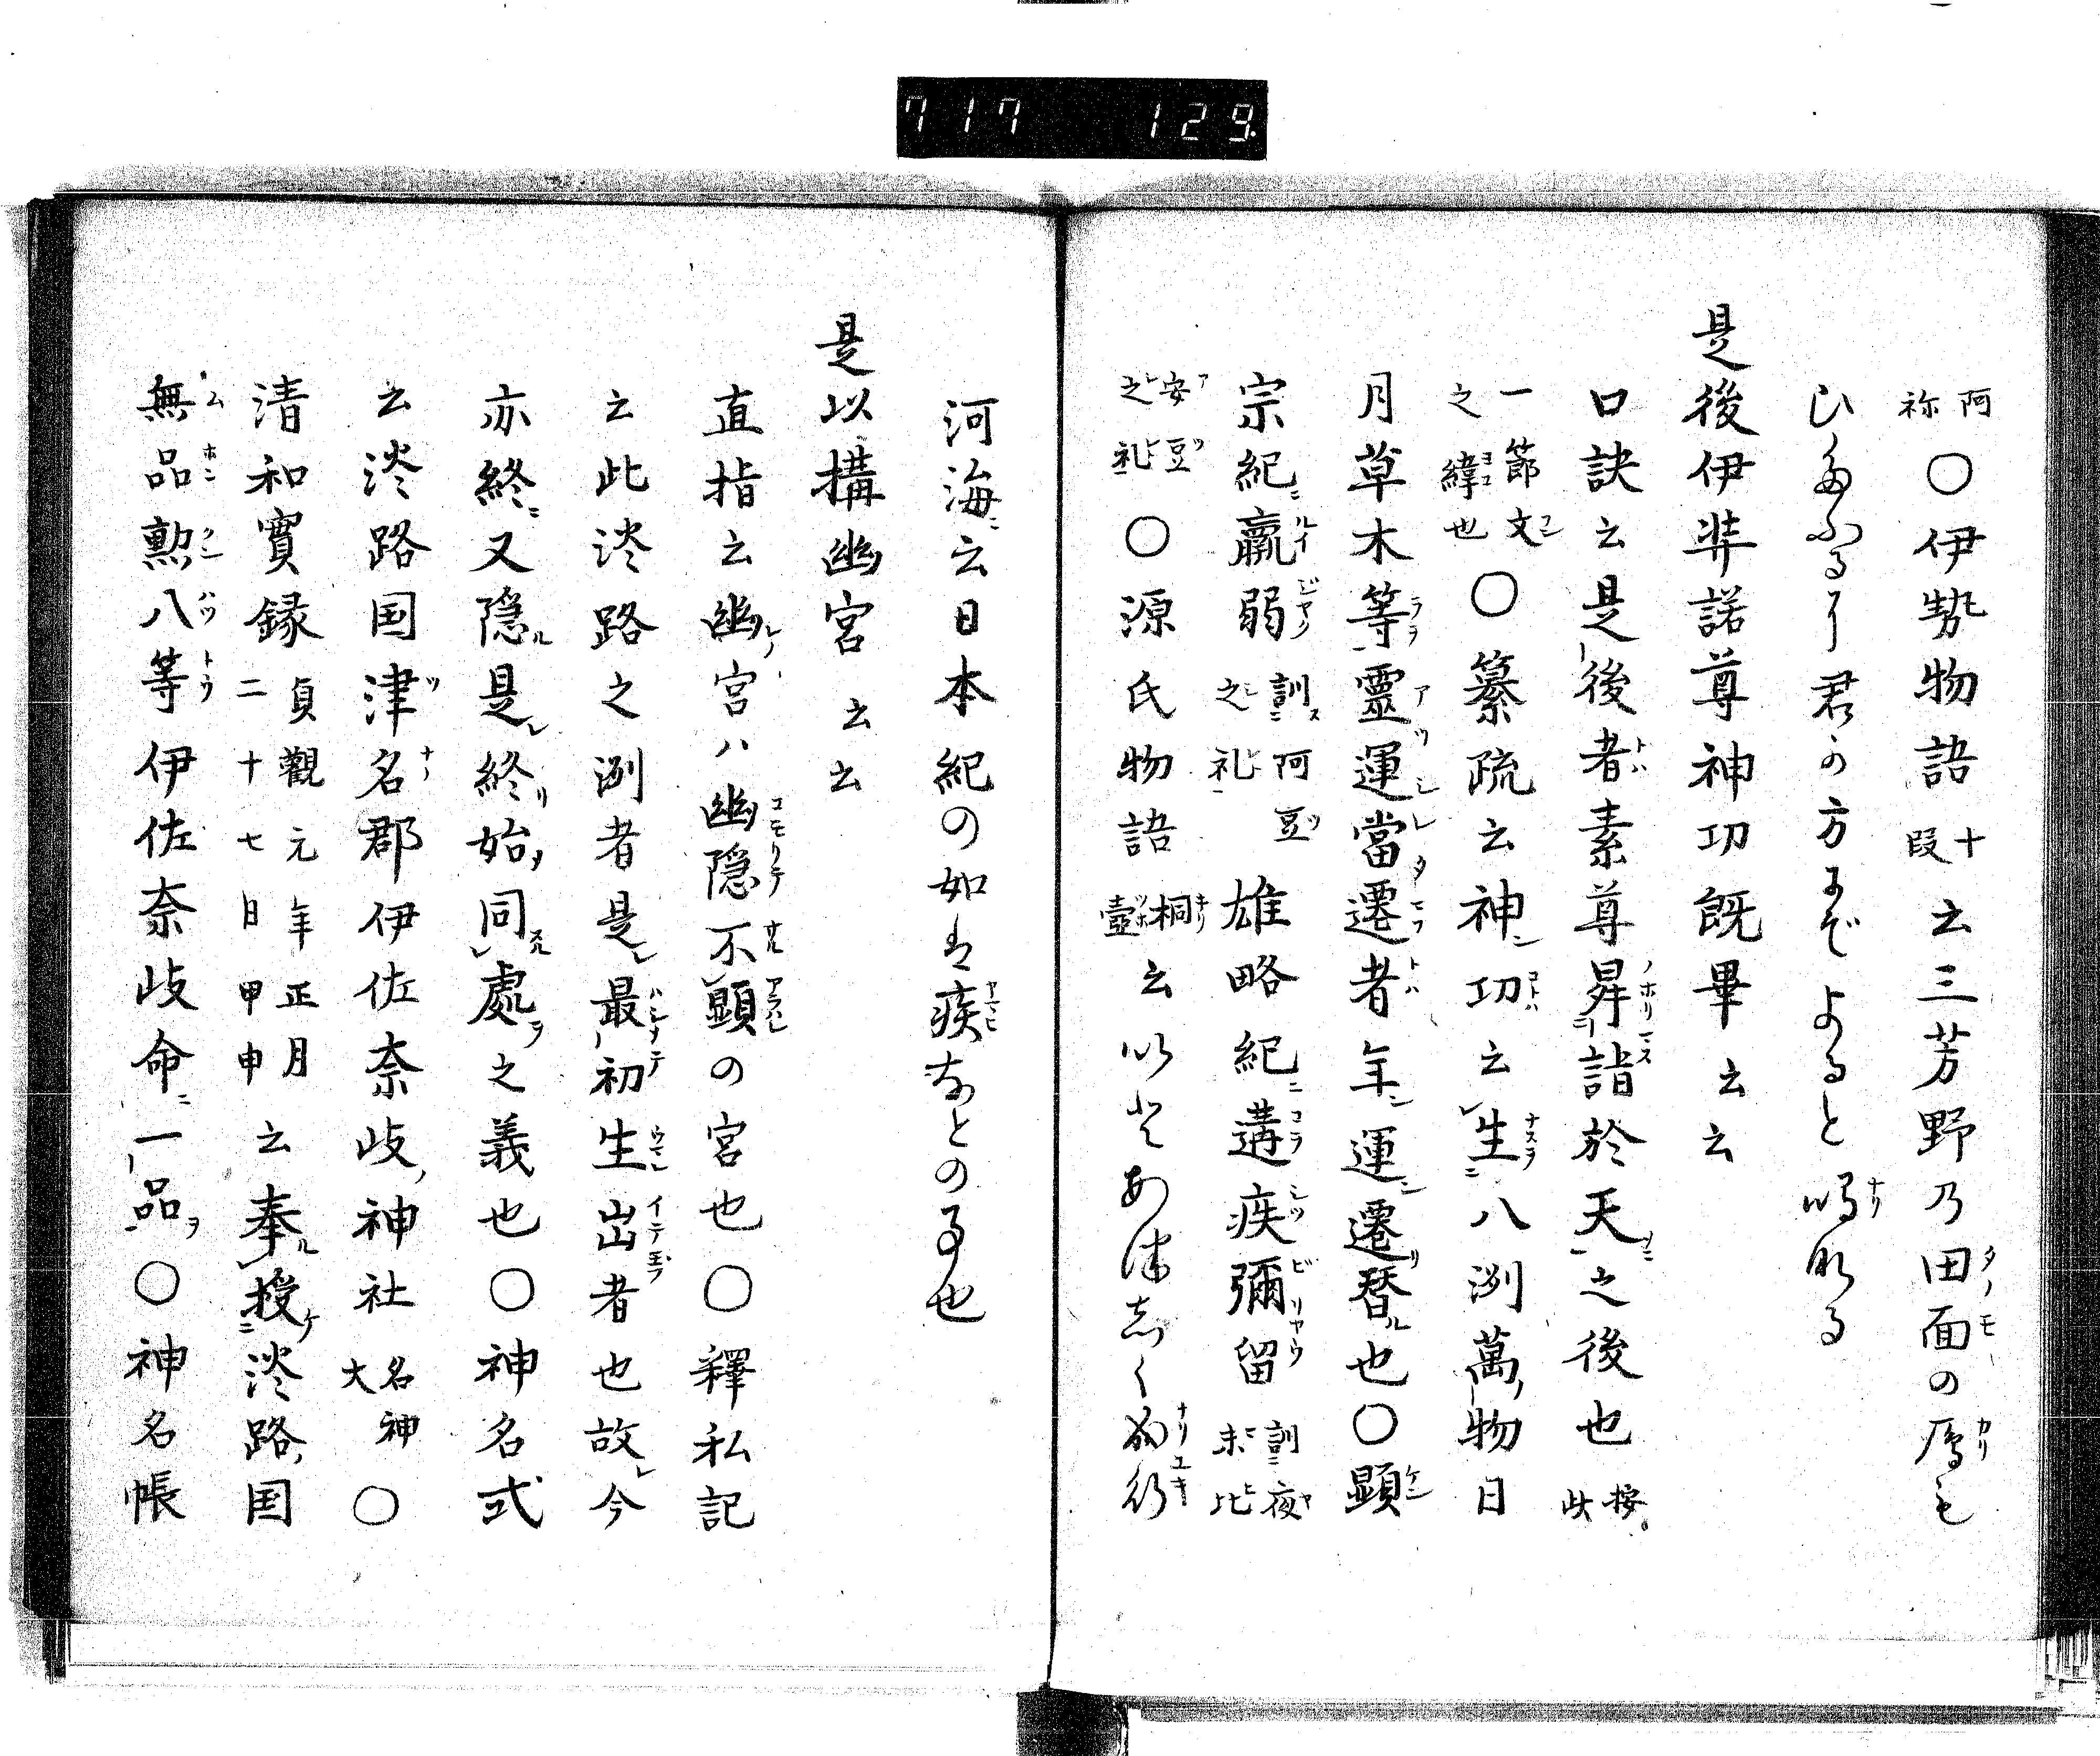 717 129
阿祢〇伊勢物語十段云三芳野乃田面の鴈も
ひたふるに君か方にそよると鳴なる
是後伊弉諾尊神功既畢云云
口訣云是後者素尊昇詣於天之後也按此
一節文之緯也〇纂疏云神功云生八洲萬物日
月草木等靈運當遷者年運遷替也〇顕
宗紀羸弱訓阿豆之礼雄略紀遘疾彌留訓夜末比
安豆之礼〇源氏物語桐壺云いとあつしく成行
河海云日本紀の如は疾なとの事也
是以構幽宮云云
直指云幽宮ハ幽隠不顕の宮也〇釋私記
云此淡路之洲者是最初生出者也故今
亦終又隠是終始同處之義也〇神名式
云淡路国津名郡伊佐奈岐神社名神大〇
清和實録貞觀元年正月二十七日甲申云奉授淡路国
無品勲八等伊佐奈岐命一品〇神名帳